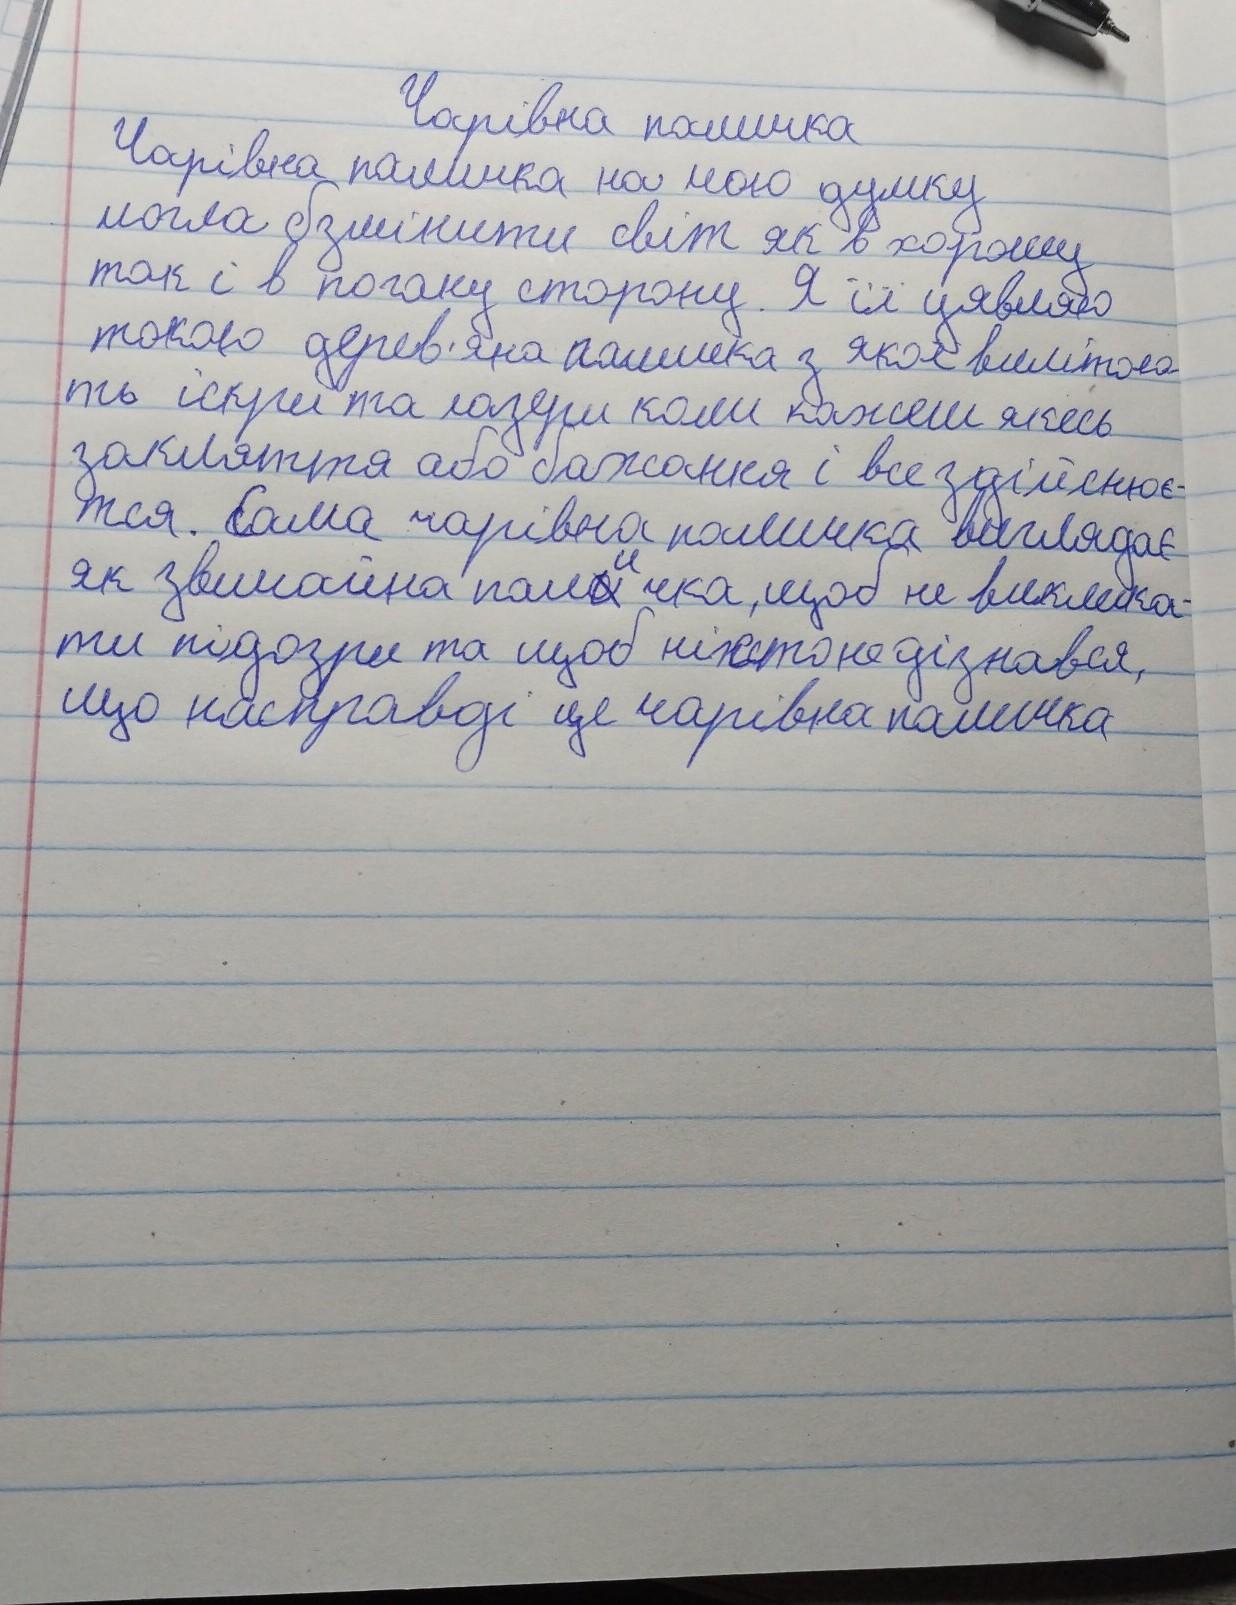 Чарівна паличка
Чарівна паличка на мою думку
могла б змінити світ як в хорошу
так і в погану сторону. Я її уявляю
такою дерев'яна паличка з якої вилітаю-
ть іскри та лазери коли кажеш якесь
закляття або бажання і все здійснює-
тся. Сама чарівна паличка виглядає
як звичайна паличка, щоб не виклика-
ти підозри та щоб ніхто не дізнався,
що насправді це чарівна паличка